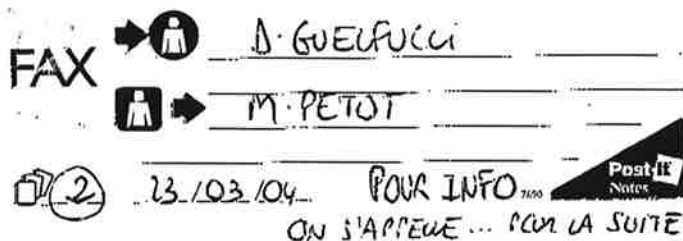 FAX
D. GUELFUCCI
M. PETOT
2 23/03/04 POUR INFO 7690 Post-it
Notes
ON S'APPELLE... POUR LA SUITE